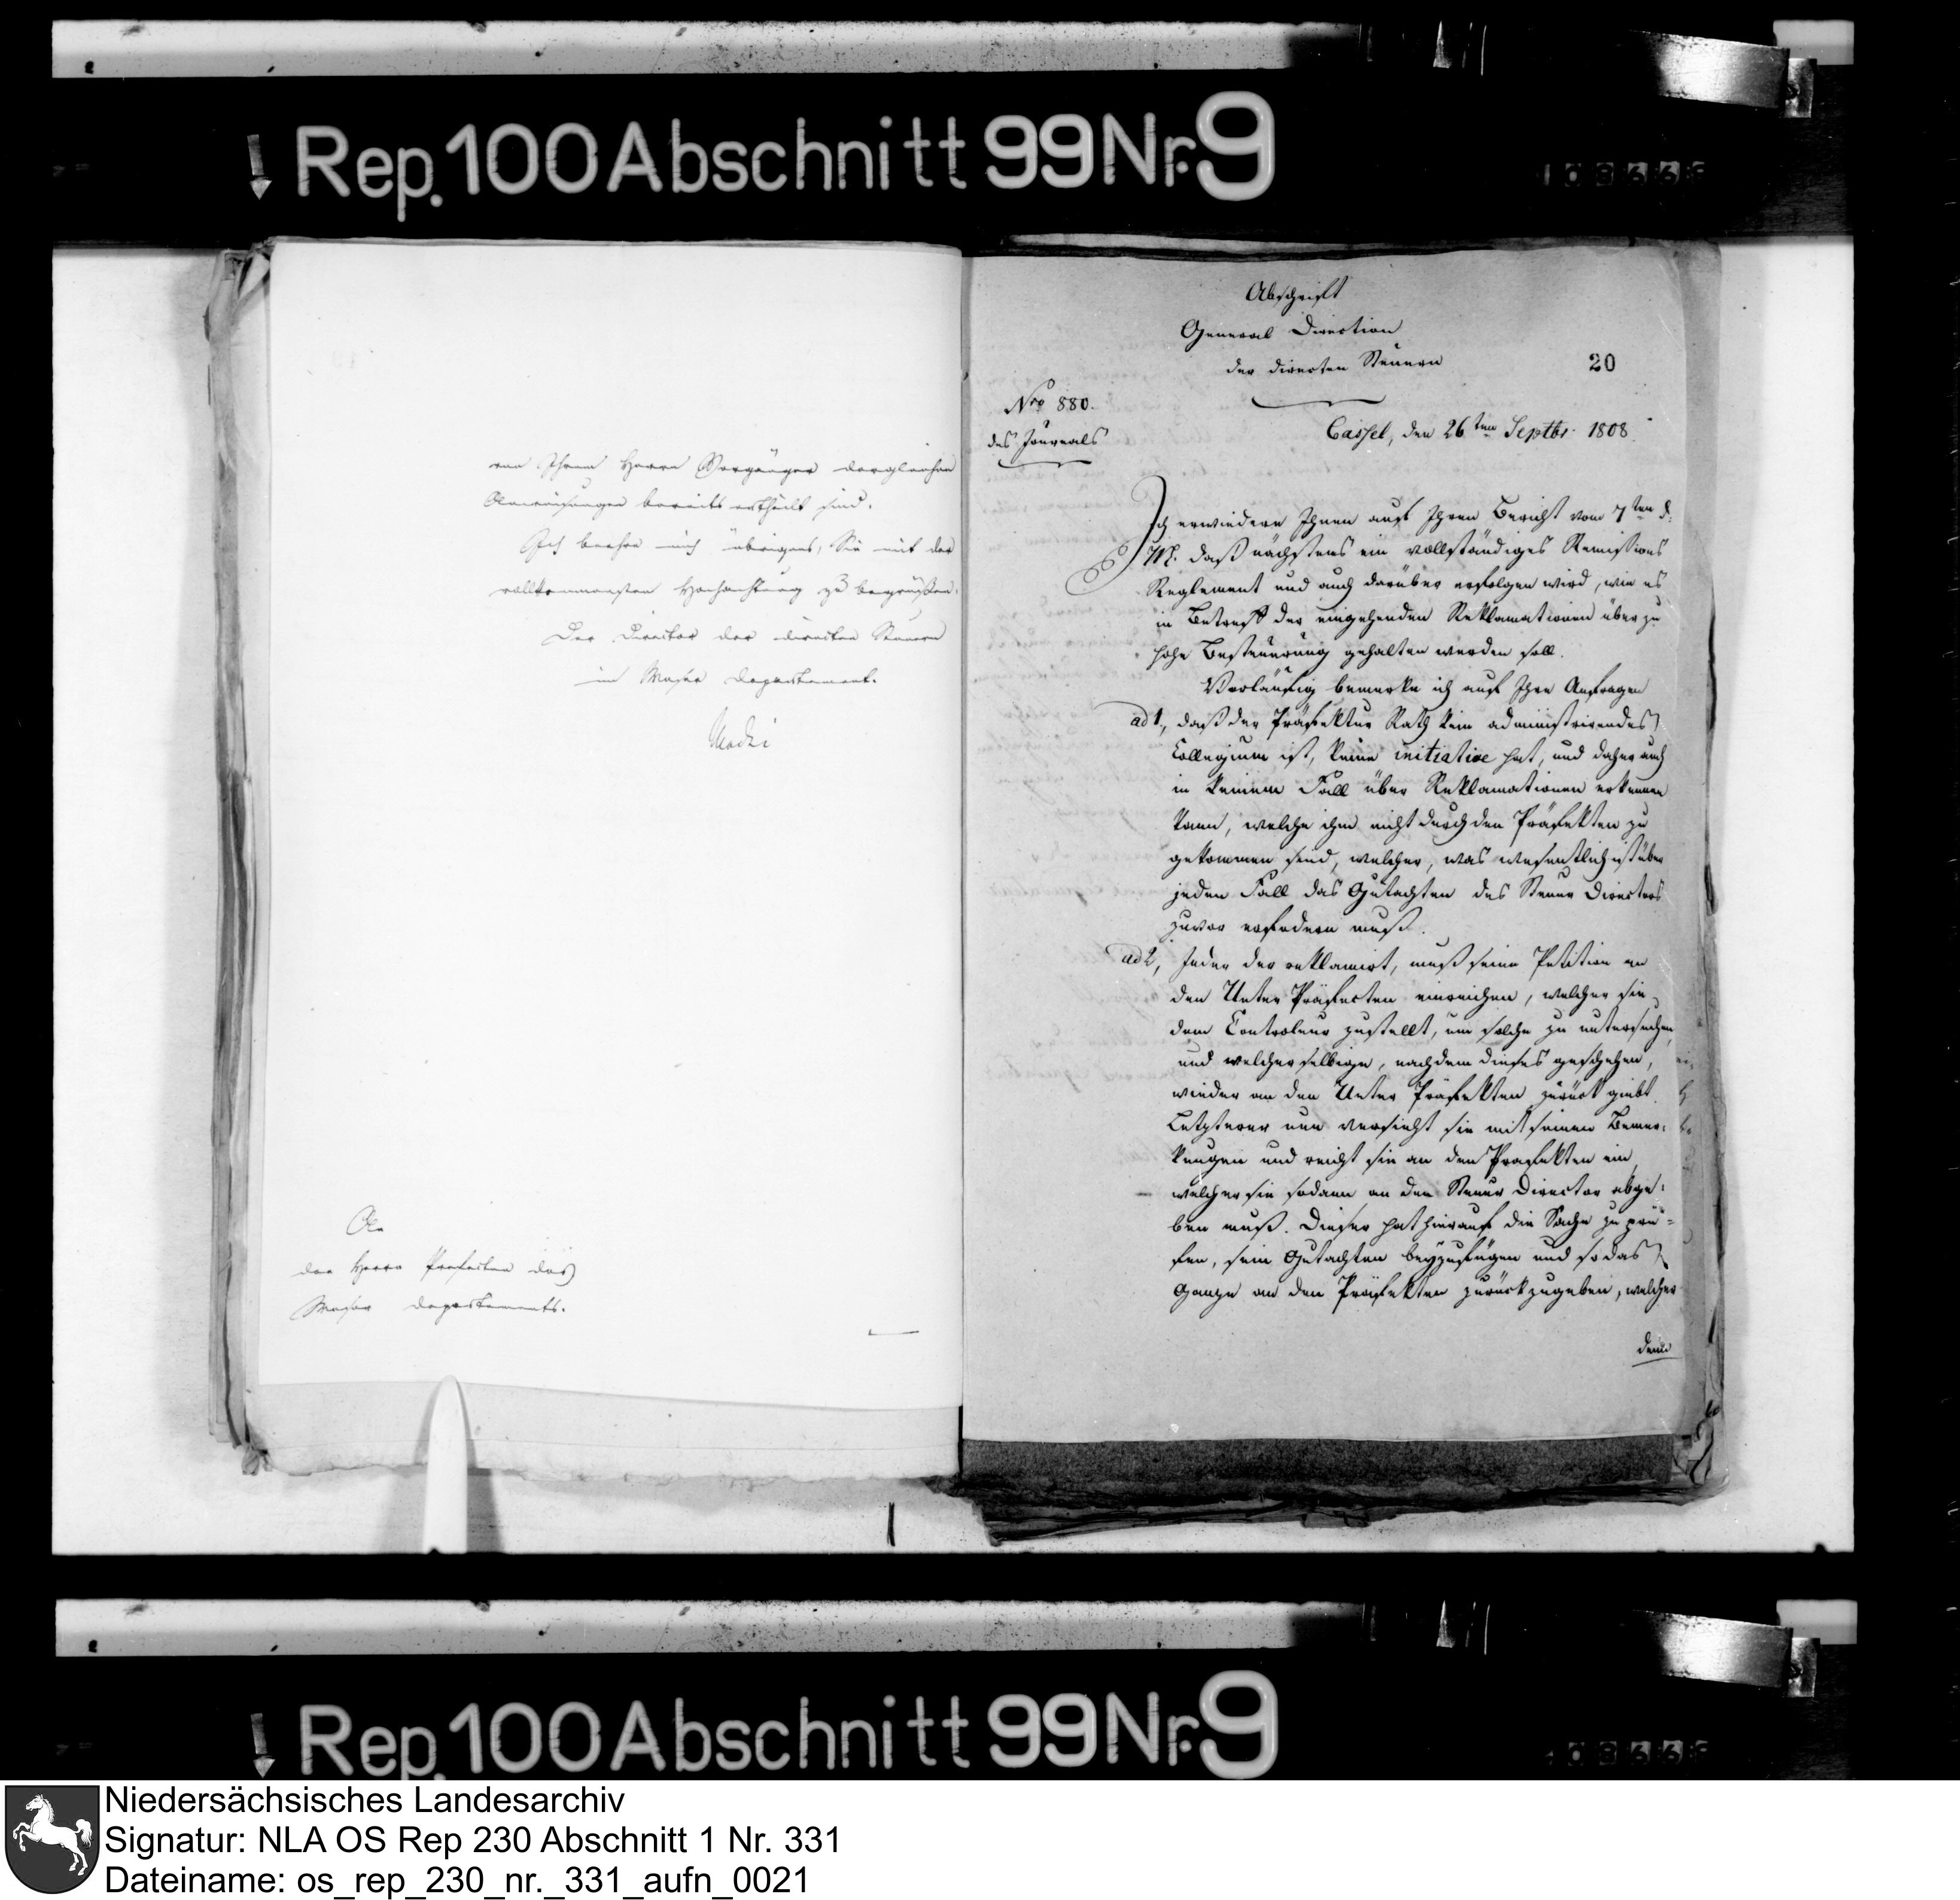 Rep. 100 Abschnitt 99 Nr. 9
von Ihrem Herrn Vorgänger dergleichen
Anweisungen bereits ertheilt sind.
Ich beehre mich übrigens, Sie mit der
vollkommensten Hochachtung zu begrüßen.
Der Director der directen Steuern
im Weser Departement.
An
den Herrn Praefecten des
Weser Departements.
Abschrift
General Direction
der directen Steuern
20
Nro 880.
des Journals
Cassel, den 26ten Septbr 1808.
Ich erwiedere Ihnen auf Ihren Bericht vom 7ten d.
M. daß nächstens ein vollständiges Remissions
Reglement und auch darüber erfolgen wird, wie es
in Betreff der eingehenden Reklamationen über zu
hohe Besteuerung gehalten werden soll.
Vorläufig bemerke ich auf Ihre Anfragen
ad 1, daß der Präfektur Rath kein administrirendes
Collegium ist, keine initiative hat, und daher auch
in keinem Fall über Reklamationen erkennen
kann, welche ihm nicht durch den Präfekten zu
gekommen sind, welcher, was wesentlich ist über
jeden Fall das Gutachten des Steuer Directors
zuvor erfodern muß.
ad 2, Jeder der reklamirt, muß seine Petition an
den Unter Präfecten einreichen, welcher sie
dem Controleur zustellt, um solche zu untersuchen,
und welcher selbige, nachdem dieses geschehen,
wieder an den Unter Präfekten zurück giebt.
Letzterer nun versieht sie mit seinen Bemer-
kungen und reicht sie an den Praefekten ein,
welcher sie sodann an den Steuer Director abge-
ben muß. Dieser hat hierauf die Sache zu prü-
fen, sein Gutachten beyzufügen und so das
Ganze an den Präfekten zurückzugeben, welcher
dann
Rep. 100 Abschnitt 99 Nr. 9
Niedersächsisches Landesarchiv
Signatur: NLA OS Rep 230 Abschnitt 1 Nr. 331
Dateiname: os_rep_230_nr._331_aufn_0021